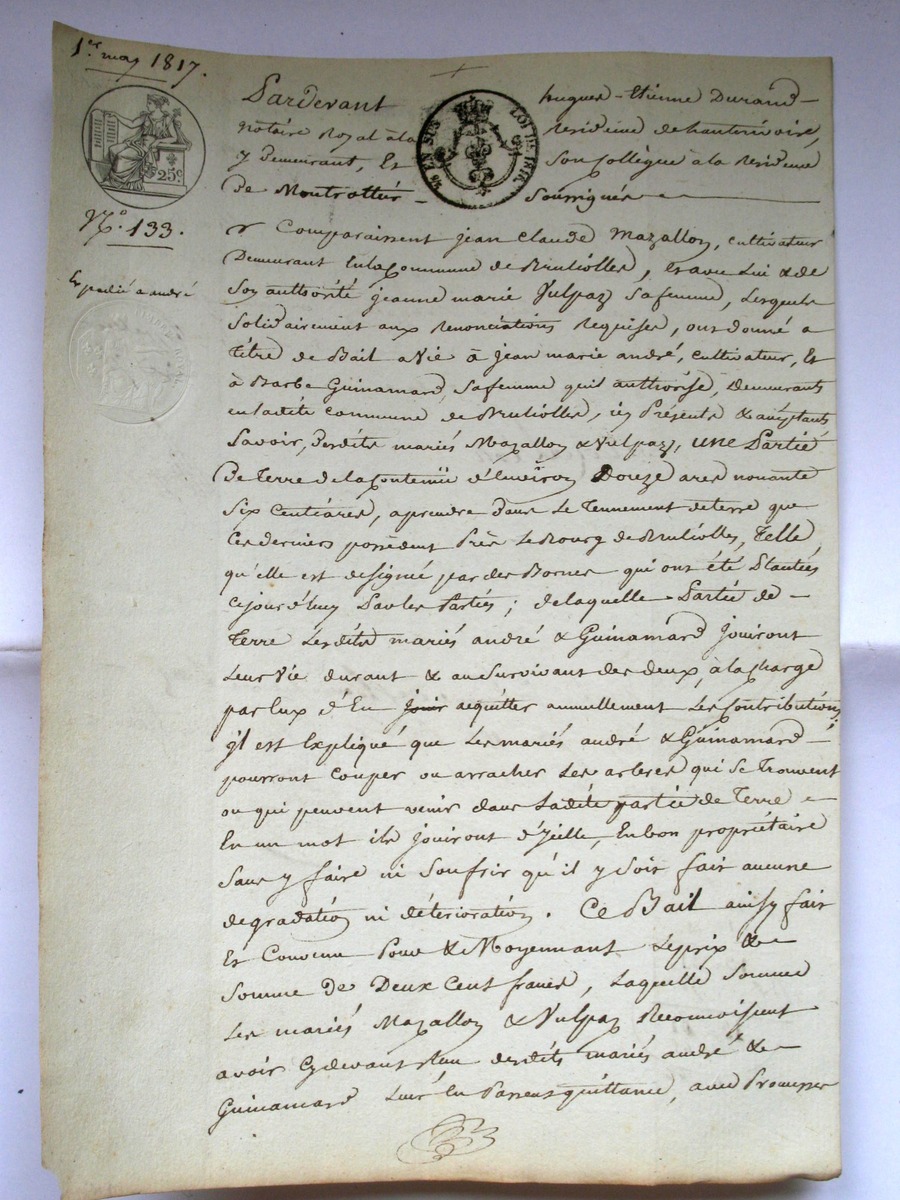 1er may 1817.
Pardevant hugues-Etienne Durand
notaire Royal à la residence de hauterivoire,
y demeurant, Et Son Collègue à la residence
de Montrottier Soussignés
25c
LOI DE
EN SUS
No. 133.
Expedié a andré
Comparaissent jean Claude Mazallon, cultivateur
Demeurant En la Commune de Brullolles, Et avec lui & de
Son authorité jeanne marie Vulpaz Sa femme, Lesquels
Solidairement aux renonciations Requises, ont donné a
titre de Bail a Vie à jean marie andré, cultivateur, Et
à Barbe Guinamard, Sa femme qu'il authorise, Demeurants
en ladite commune de Brullolles, ici Présents & acceptants
Savoir, desdits mariés Mazallon & Vulpaz, une Partie
De Terre de la Contenüe d'Environ Douze ares nonante
Six Centiares, a prendre dans Le Tennement de terre que
Ces derniers possèdent Près Le Bourg de Brullolles, Telle
qu'elle est designée par des Bornes qui ont été Plantées
Ce jour d'huy Par les Parties ; de laquelle Partie de
Terre Lesdits mariés andré & Guinamard Jouiront
Leur Vie durant & au Survivant des deux, à la Charge
par Eux d'En jouir acquitter annuellement Les Contributions ;
il est Expliqué que Les mariés andré & Guinamard
pourront Couper ou arracher Les arbres qui Se Trouvent
ou qui peuvent venir dans Ladite partie de Terre
En un mot ils Jouiront d'Icelle, En bon propriétaire
Sans y faire ni Soufrir qu'il y Soit fait aucune
degradation ni déterioration. Ce Bail ainsy fait
Et Convenu Pour & Moyennant Le prix &
Somme de Deux Cent francs, Laquelle Somme
Les mariés Mazallon & Vulpaz Reconnoissent
avoir Cy devant Reçu desdits mariés andré &
Guinamard Leur En Passent quittance, avec Promesse